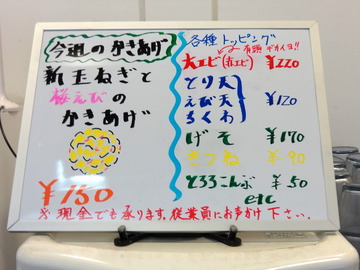 今週のかきあげ
新玉ねぎと
桜えびの
かきあげ
¥150
各種トッピング
有頭デカイヨ!!
大エビ(赤エビ) ¥220
とり天
えび天 ¥120
ちくわ
げそ ¥170
きつね ¥90
とろろこんぶ ¥50
etc
※現金でも承ります。従業員にお声かけ下さい。